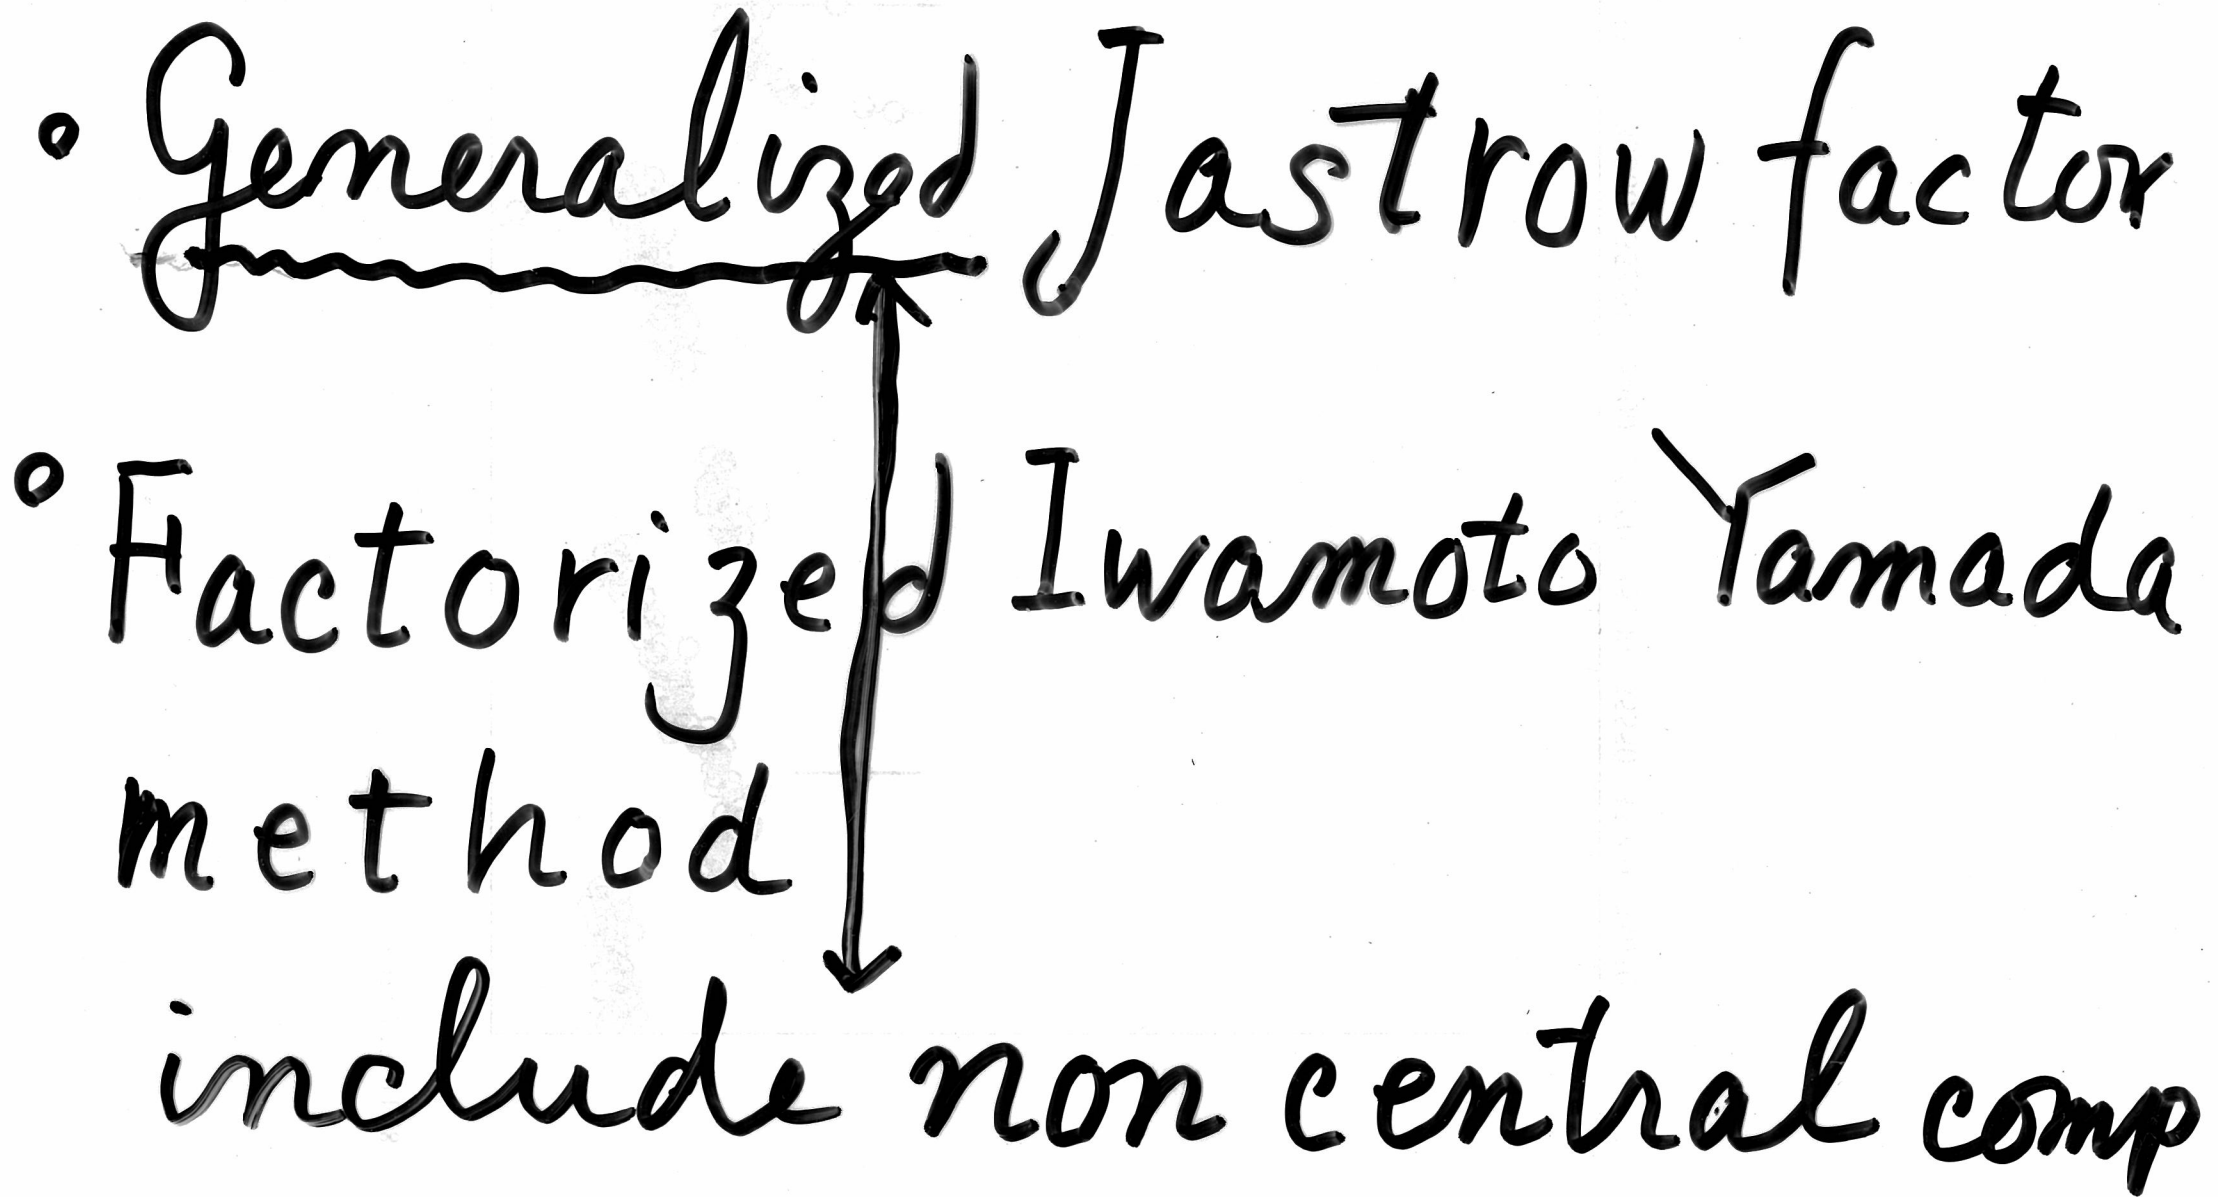 • Generalized Jastrow factor
• Factorized Iwamoto Yamada
method
include non central comp